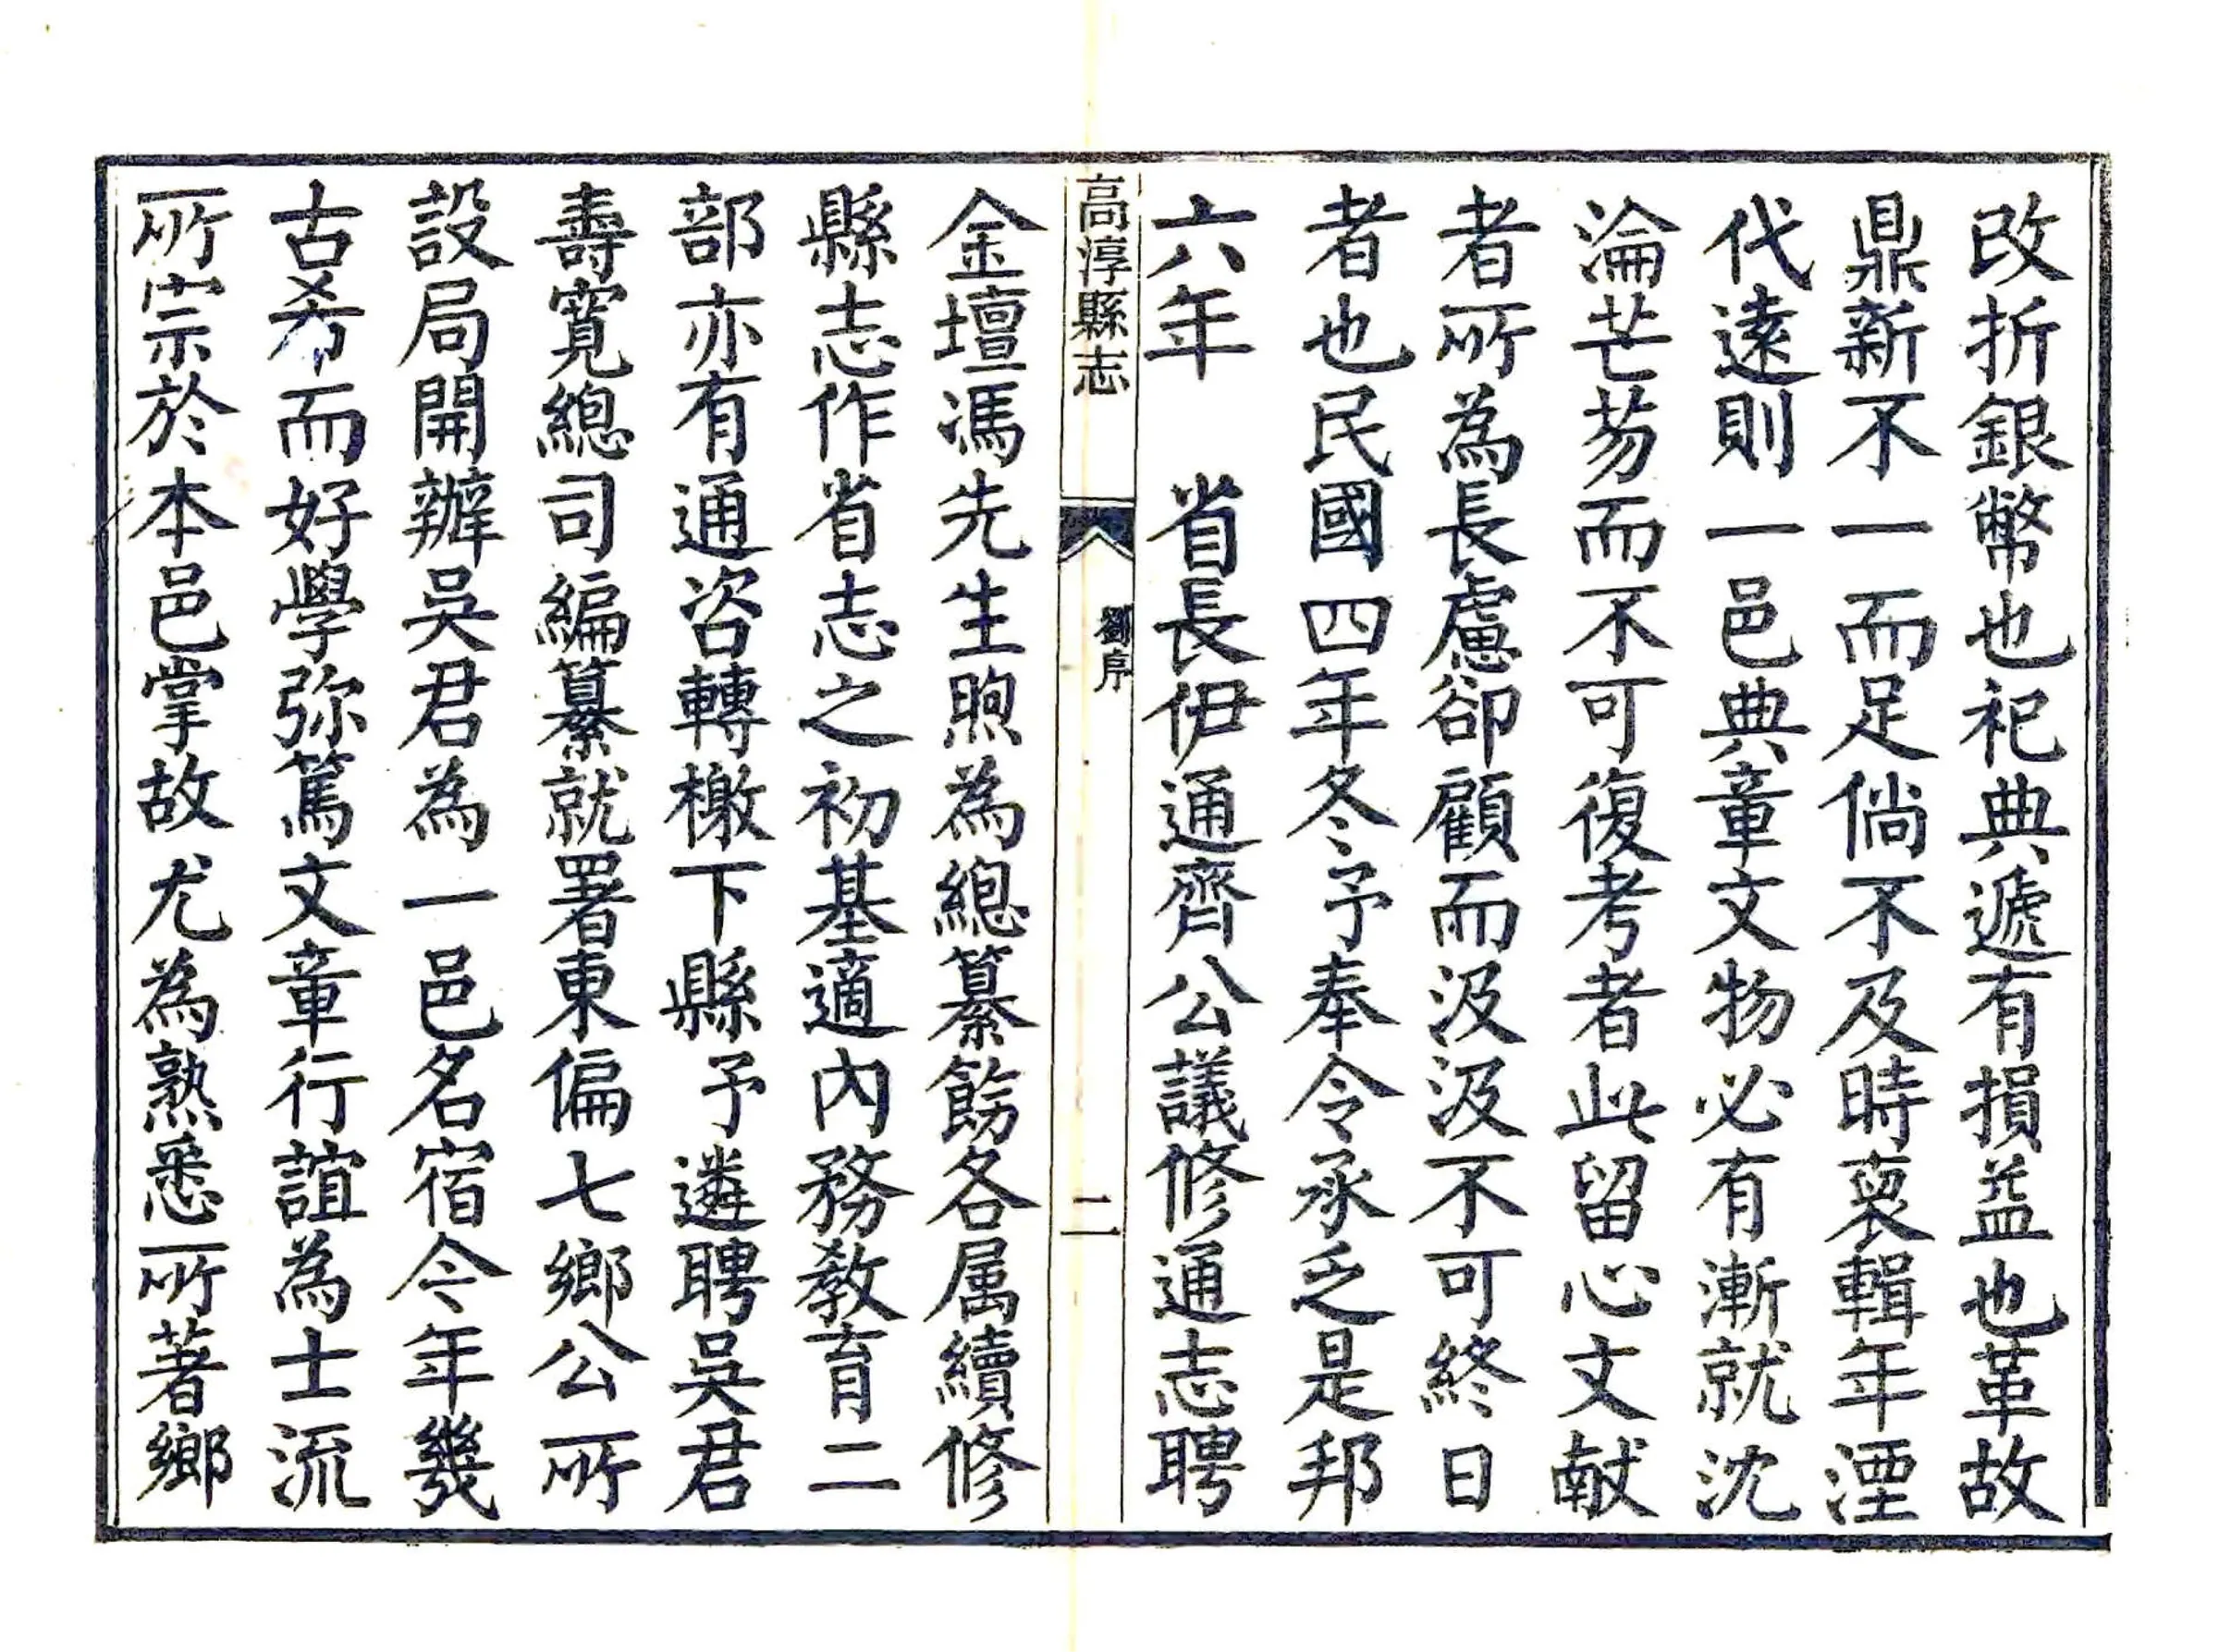 改折銀幣也祀典遞有損益也革故
鼎新不一而足倘不及時裒輯年湮
代遠則一邑典章文物必有漸就沈
淪芒芴而不可復考者此留心文献
者所為長慮卻顧而汲汲不可終日
者也民國四年冬予奉令承乏是邦
六年　省長伊通齊公議修通志聘
高淳縣志
劉序
二
金壇馮先生煦為總纂飭各属續修
縣志作省志之初基適內務教育二
部亦有通咨轉檄下縣予遴聘吳君
壽寬總司編纂就署東偏七鄉公所
設局開辦吳君為一邑名宿今年幾
古希而好學弥篤文章行誼為士流
所宗於本邑掌故尤為熟悉所著鄉